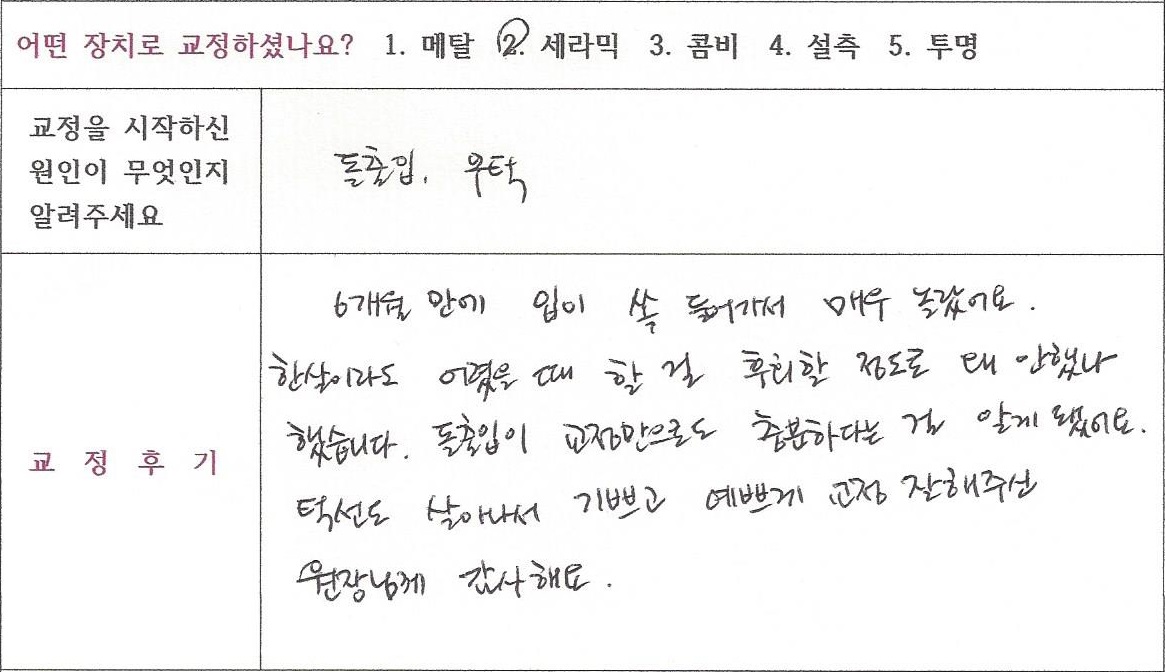 어떤 장치로 교정하셨나요? 1. 메탈 2. 세라믹 3. 콤비 4. 설측 5. 투명
교정을 시작하신
원인이 무엇인지
알려주세요
돌출입. 무턱
교 정 후 기
6개월 만에 입이 쏙 들어가서 매우 놀랐어요.
한살이라도 어렸을 때 할 걸 후회할 정도로 왜 안했나
했습니다. 돌출입이 교정만으로도 충분하다는 걸 알게 됐어요.
턱선도 살아나서 기쁘고 예쁘게 교정 잘해주신
원장님께 감사해요.